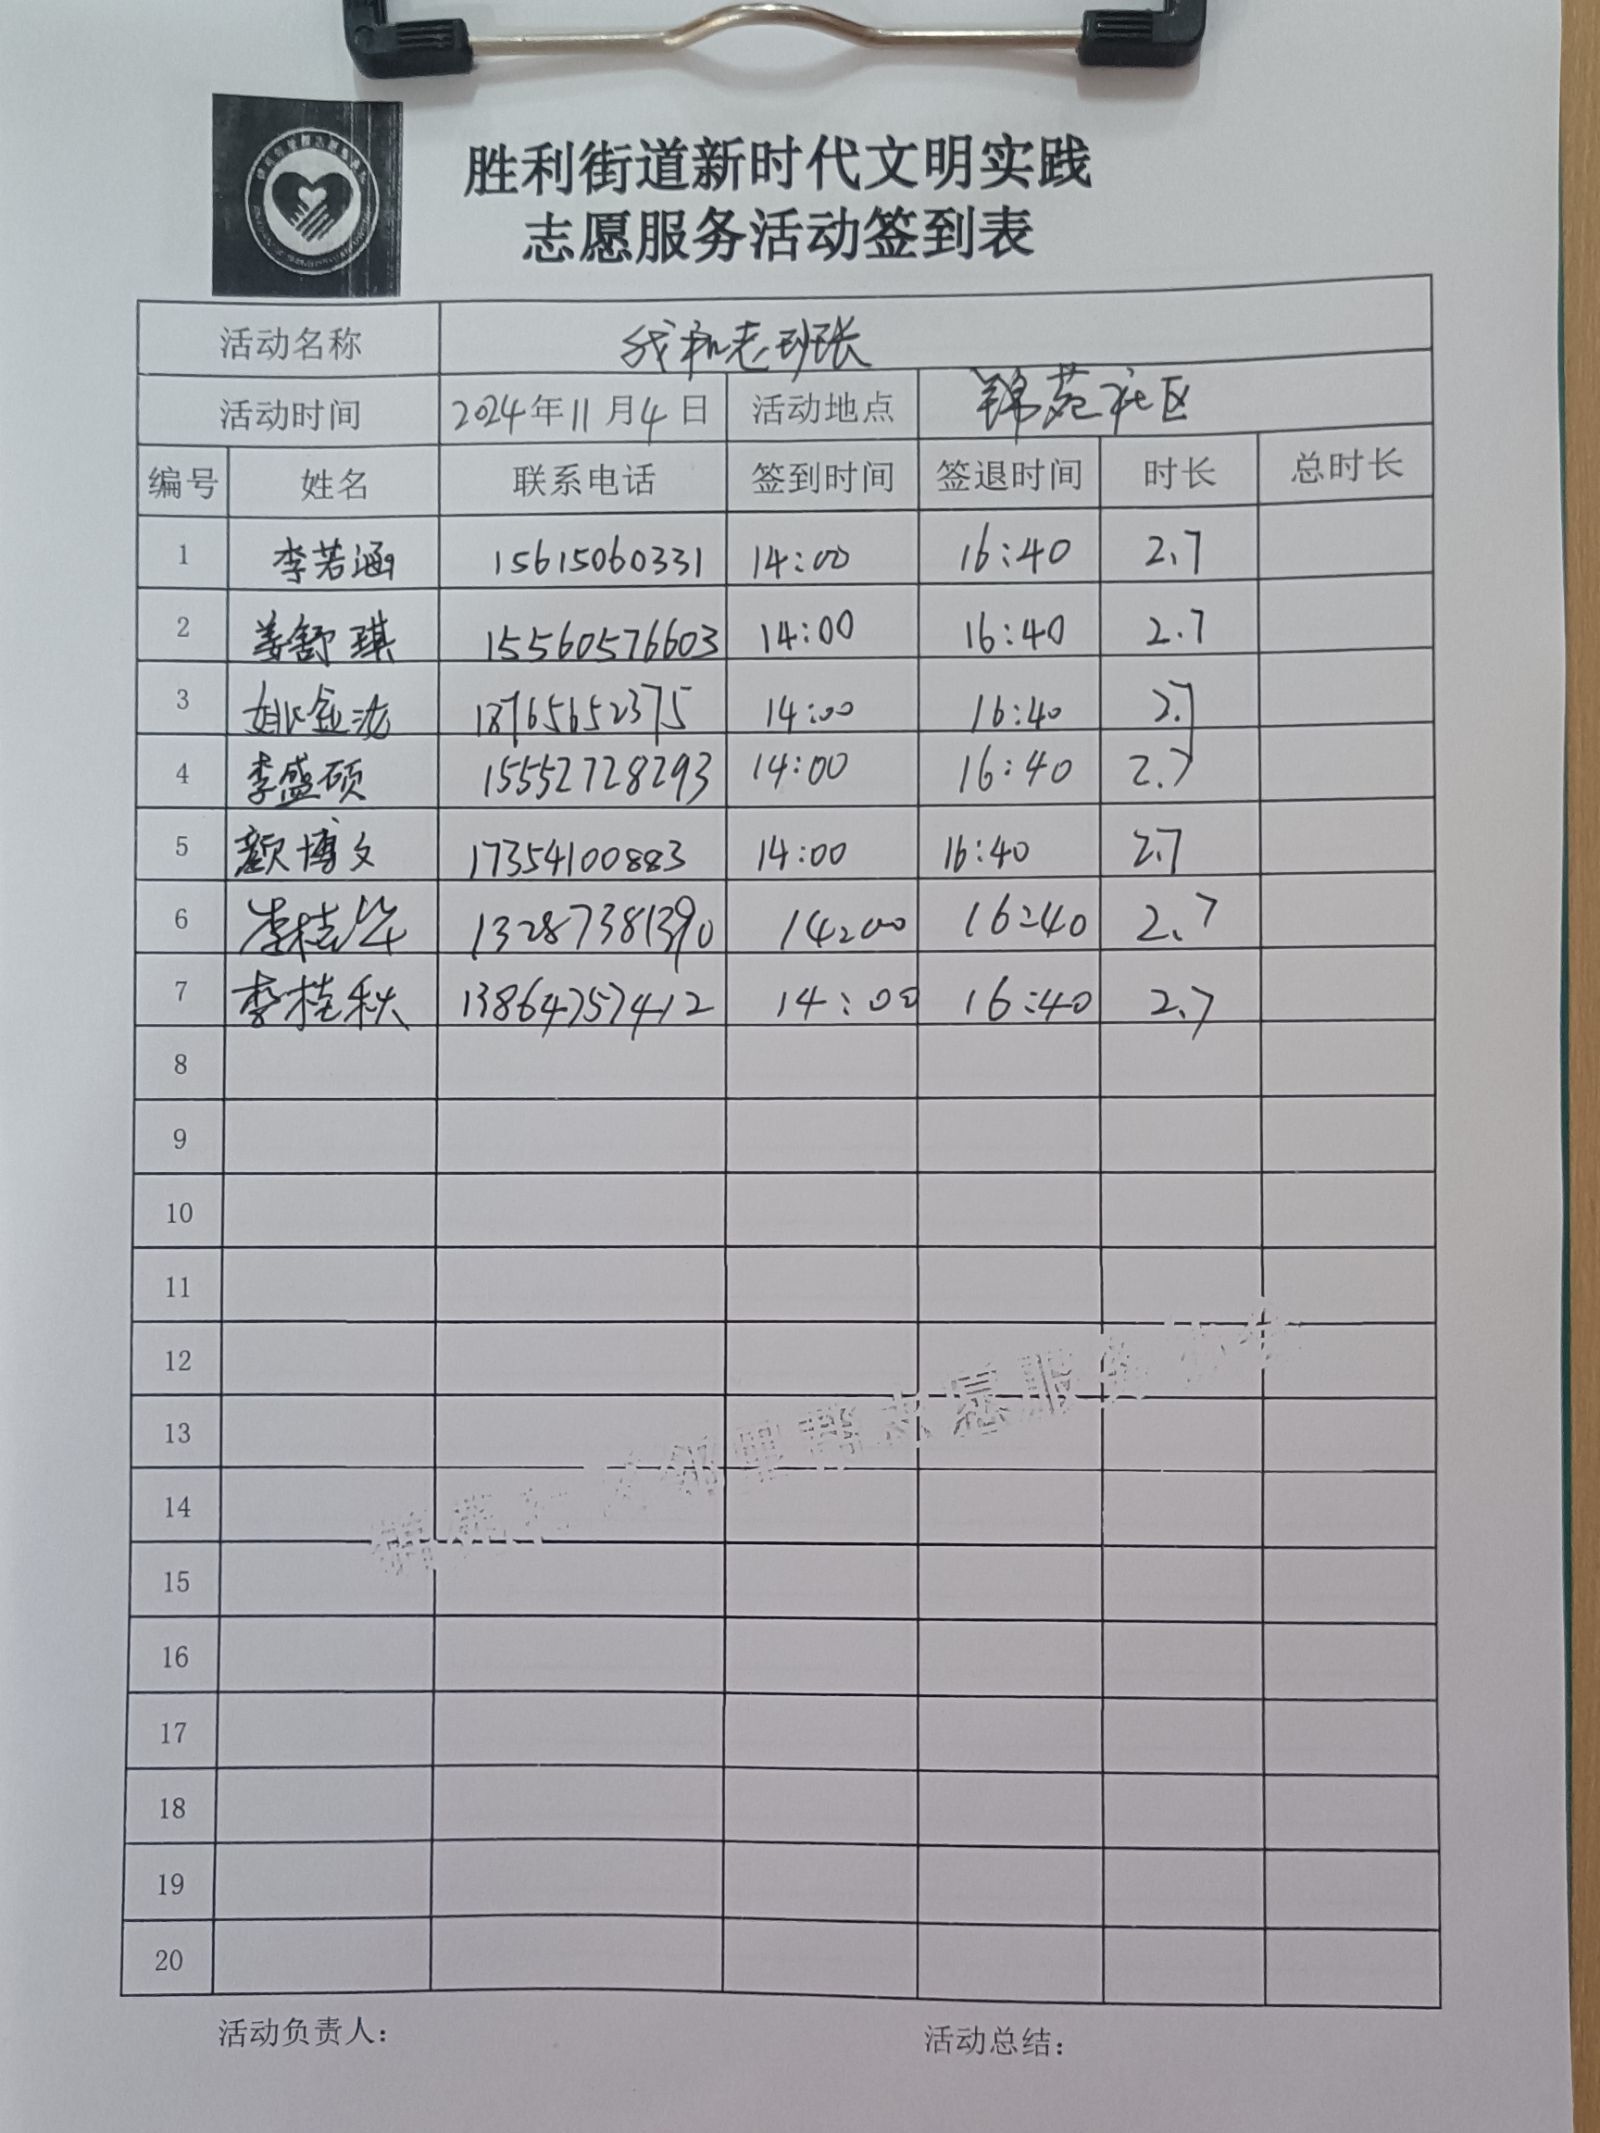 胜利街道新时代文明实践
志愿服务活动签到表
活动名称 我和老班长
活动时间 2024年11月4日 活动地点 锦苑社区
编号 姓名 联系电话 签到时间 签退时间 时长 总时长
1 李若涵 15615060331 14:00 16:40 2.7
2 姜舒琪 15560576603 14:00 16:40 2.7
3 18765652375 14:00 16:40 2.7
4 李盛硕 15552728293 14:00 16:40 2.7
5 颜博文 17354100883 14:00 16:40 2.7
6 李桂华 13287381390 14:00 16:40 2.7
7 李桂秋 13864757412 14:00 16:40 2.7
8
9
10
11
12
13
14
15
16
17
18
19
20
邻里帮志愿服务
活动负责人: 活动总结: